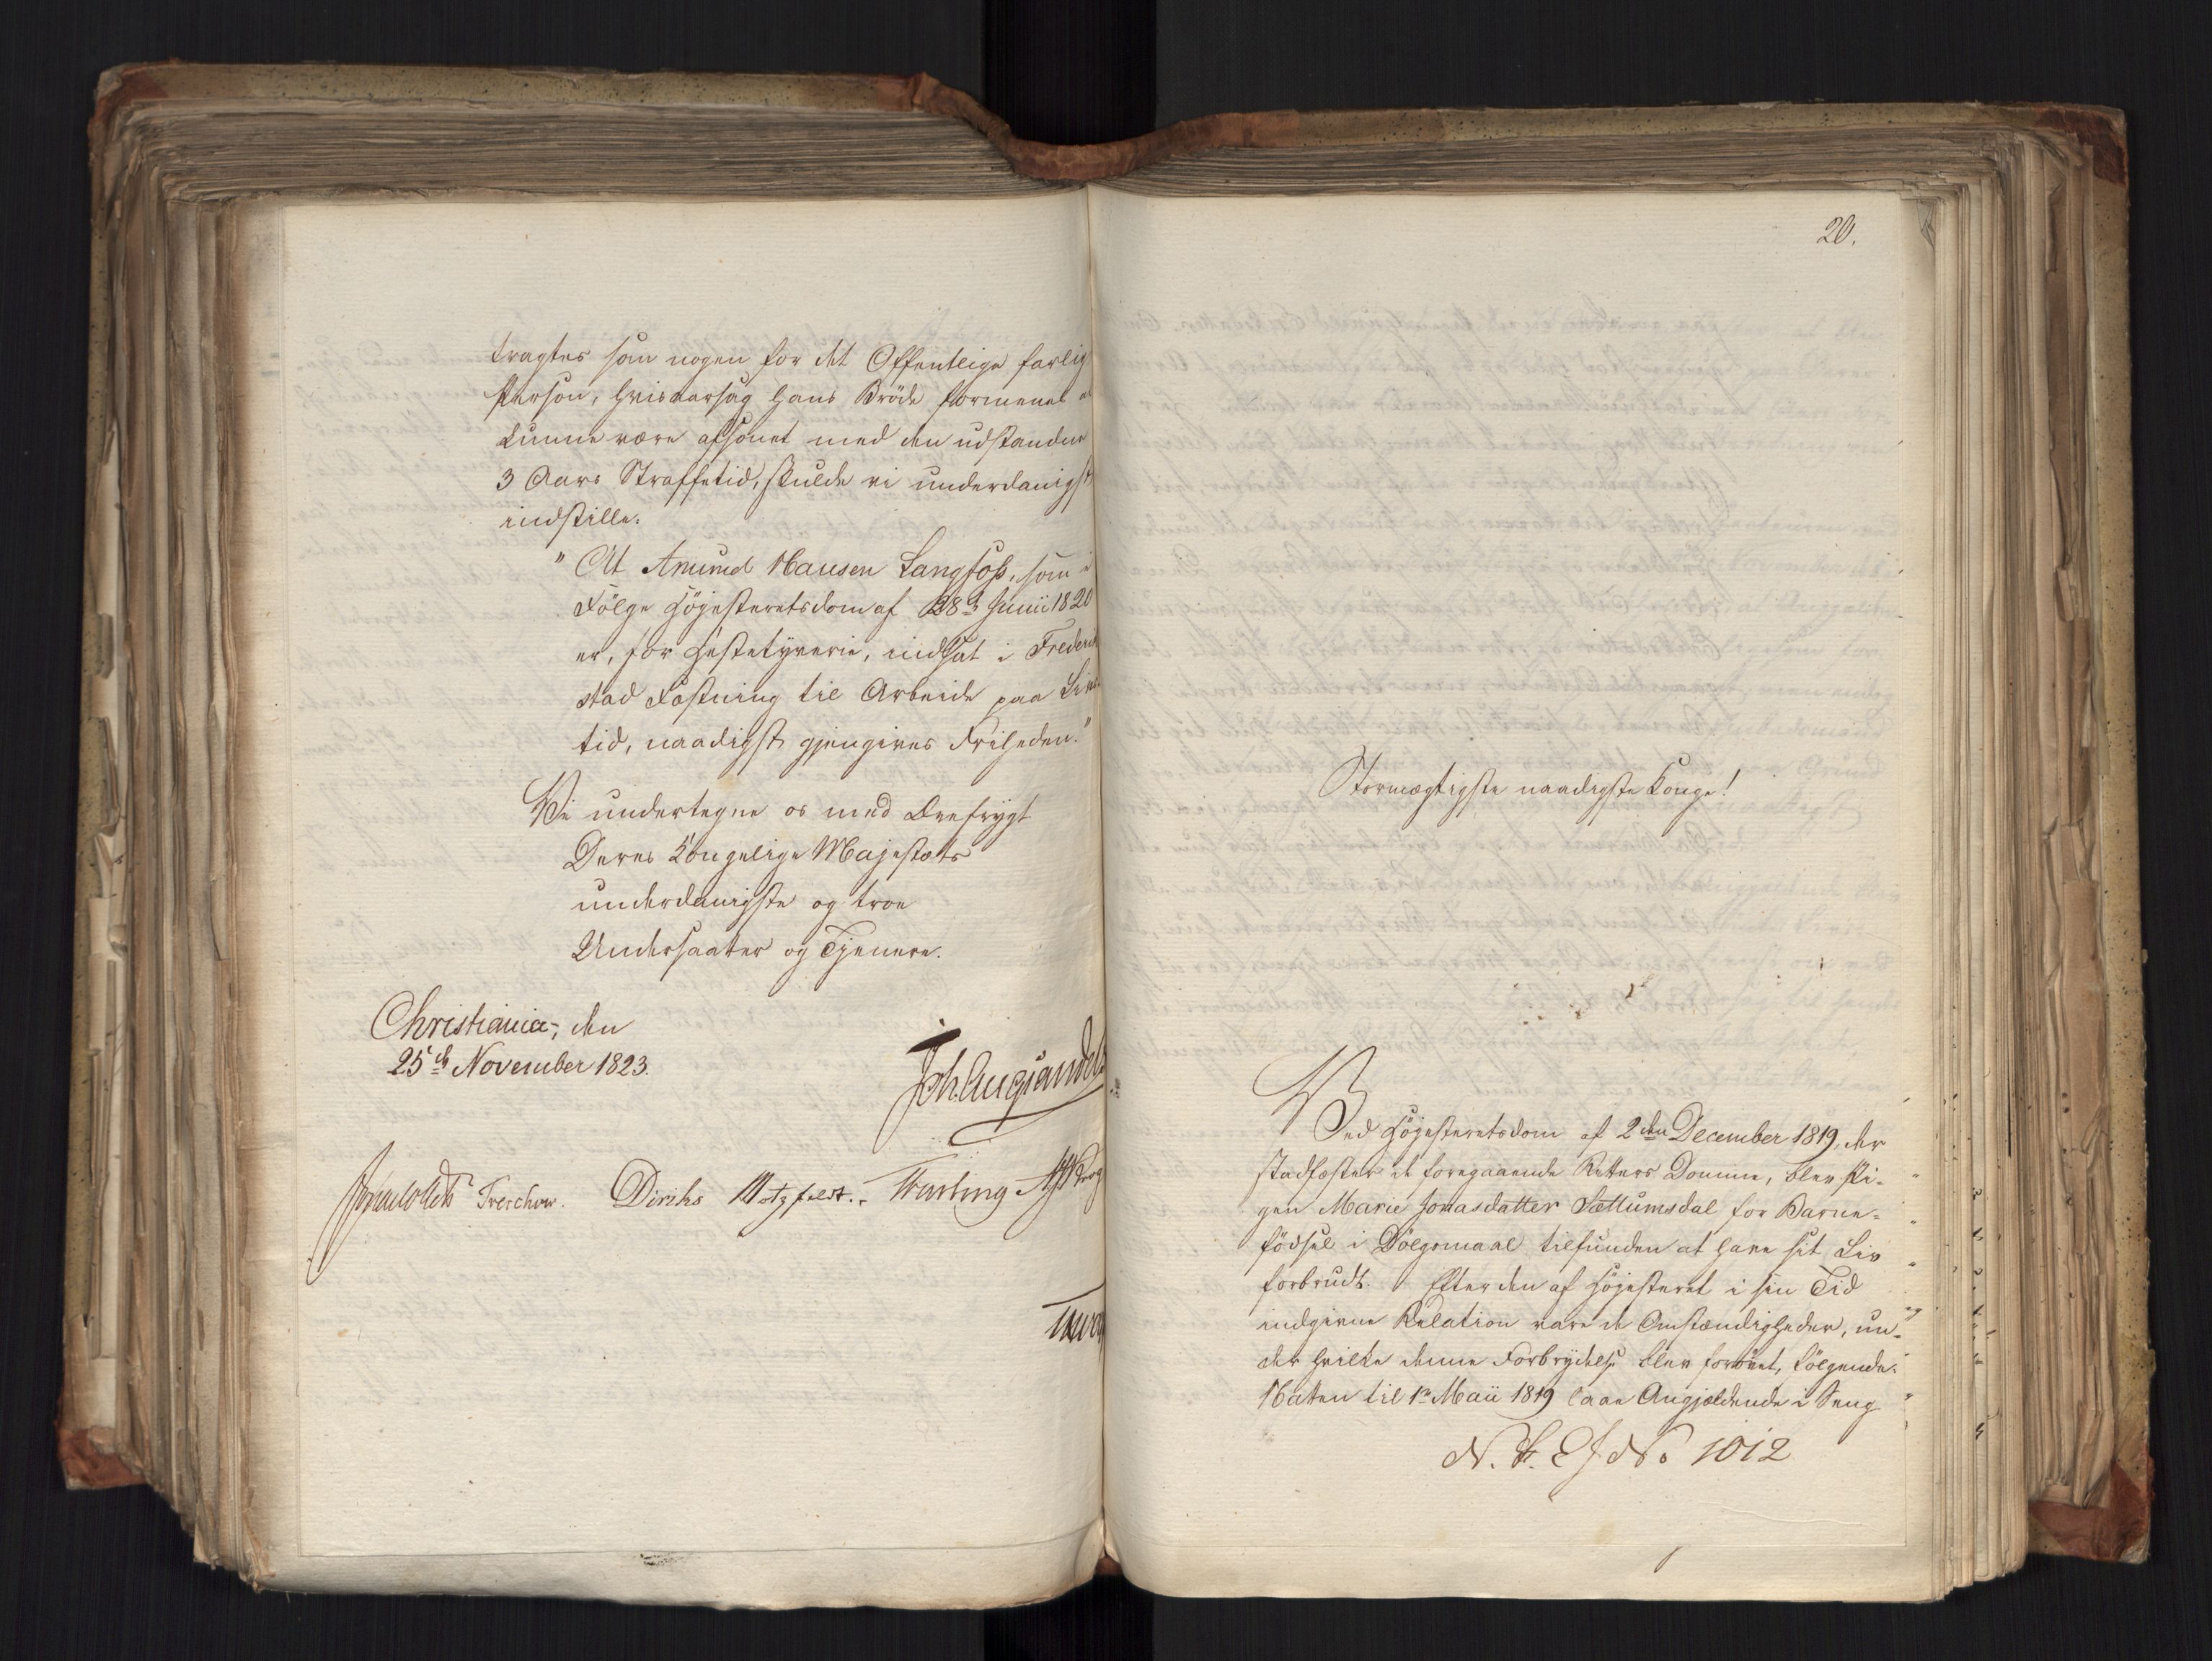 tragtes som nogen for det Offentlige farlig
Person, hvisaarsag hans Bröde formenes at
kunne være afsonet med den udstandne
3 Aars Straffetid, skulde vi underdanigst
indstille:
"At Amund Hansen Langfos, som i
Fölge Höjesteretsdom af 28de Junii 1820
er, for Hestetyverie, indsat i Frederik
stad Fæstning til Arbeide paa Livs
tid, naadigst gjengives Friheden."
Vi undertegne os med Ærefrygt
Deres Kongelige Majestæts
underdanigste og troe
Undersaatter og Tjenere.
Christiania, den
25de November 1823.
Joh. Aug. Sandels
Treschow. Diriks Motzfeldt.
20.
Stormægtigste naadigste Konge!
Ved Höjesteretsdom af 2den December 1819, der
stadfæster de foregaaende Retters Domme, blev Pi-
gen Marie Jonasdatter Sættumsdal for Barne-
födsel i Dölgsmaal tilfunden at have sit Liv
forbrudt. Efter den af Höjesteret i sin Tid
indgivne Relation vare de Omstændigheder, un-
der hvilke denne Forbrydelse blev forövet, fölgende:
Natten til 1ste Maii 1819 laae Angjældende i Seng
No 1012